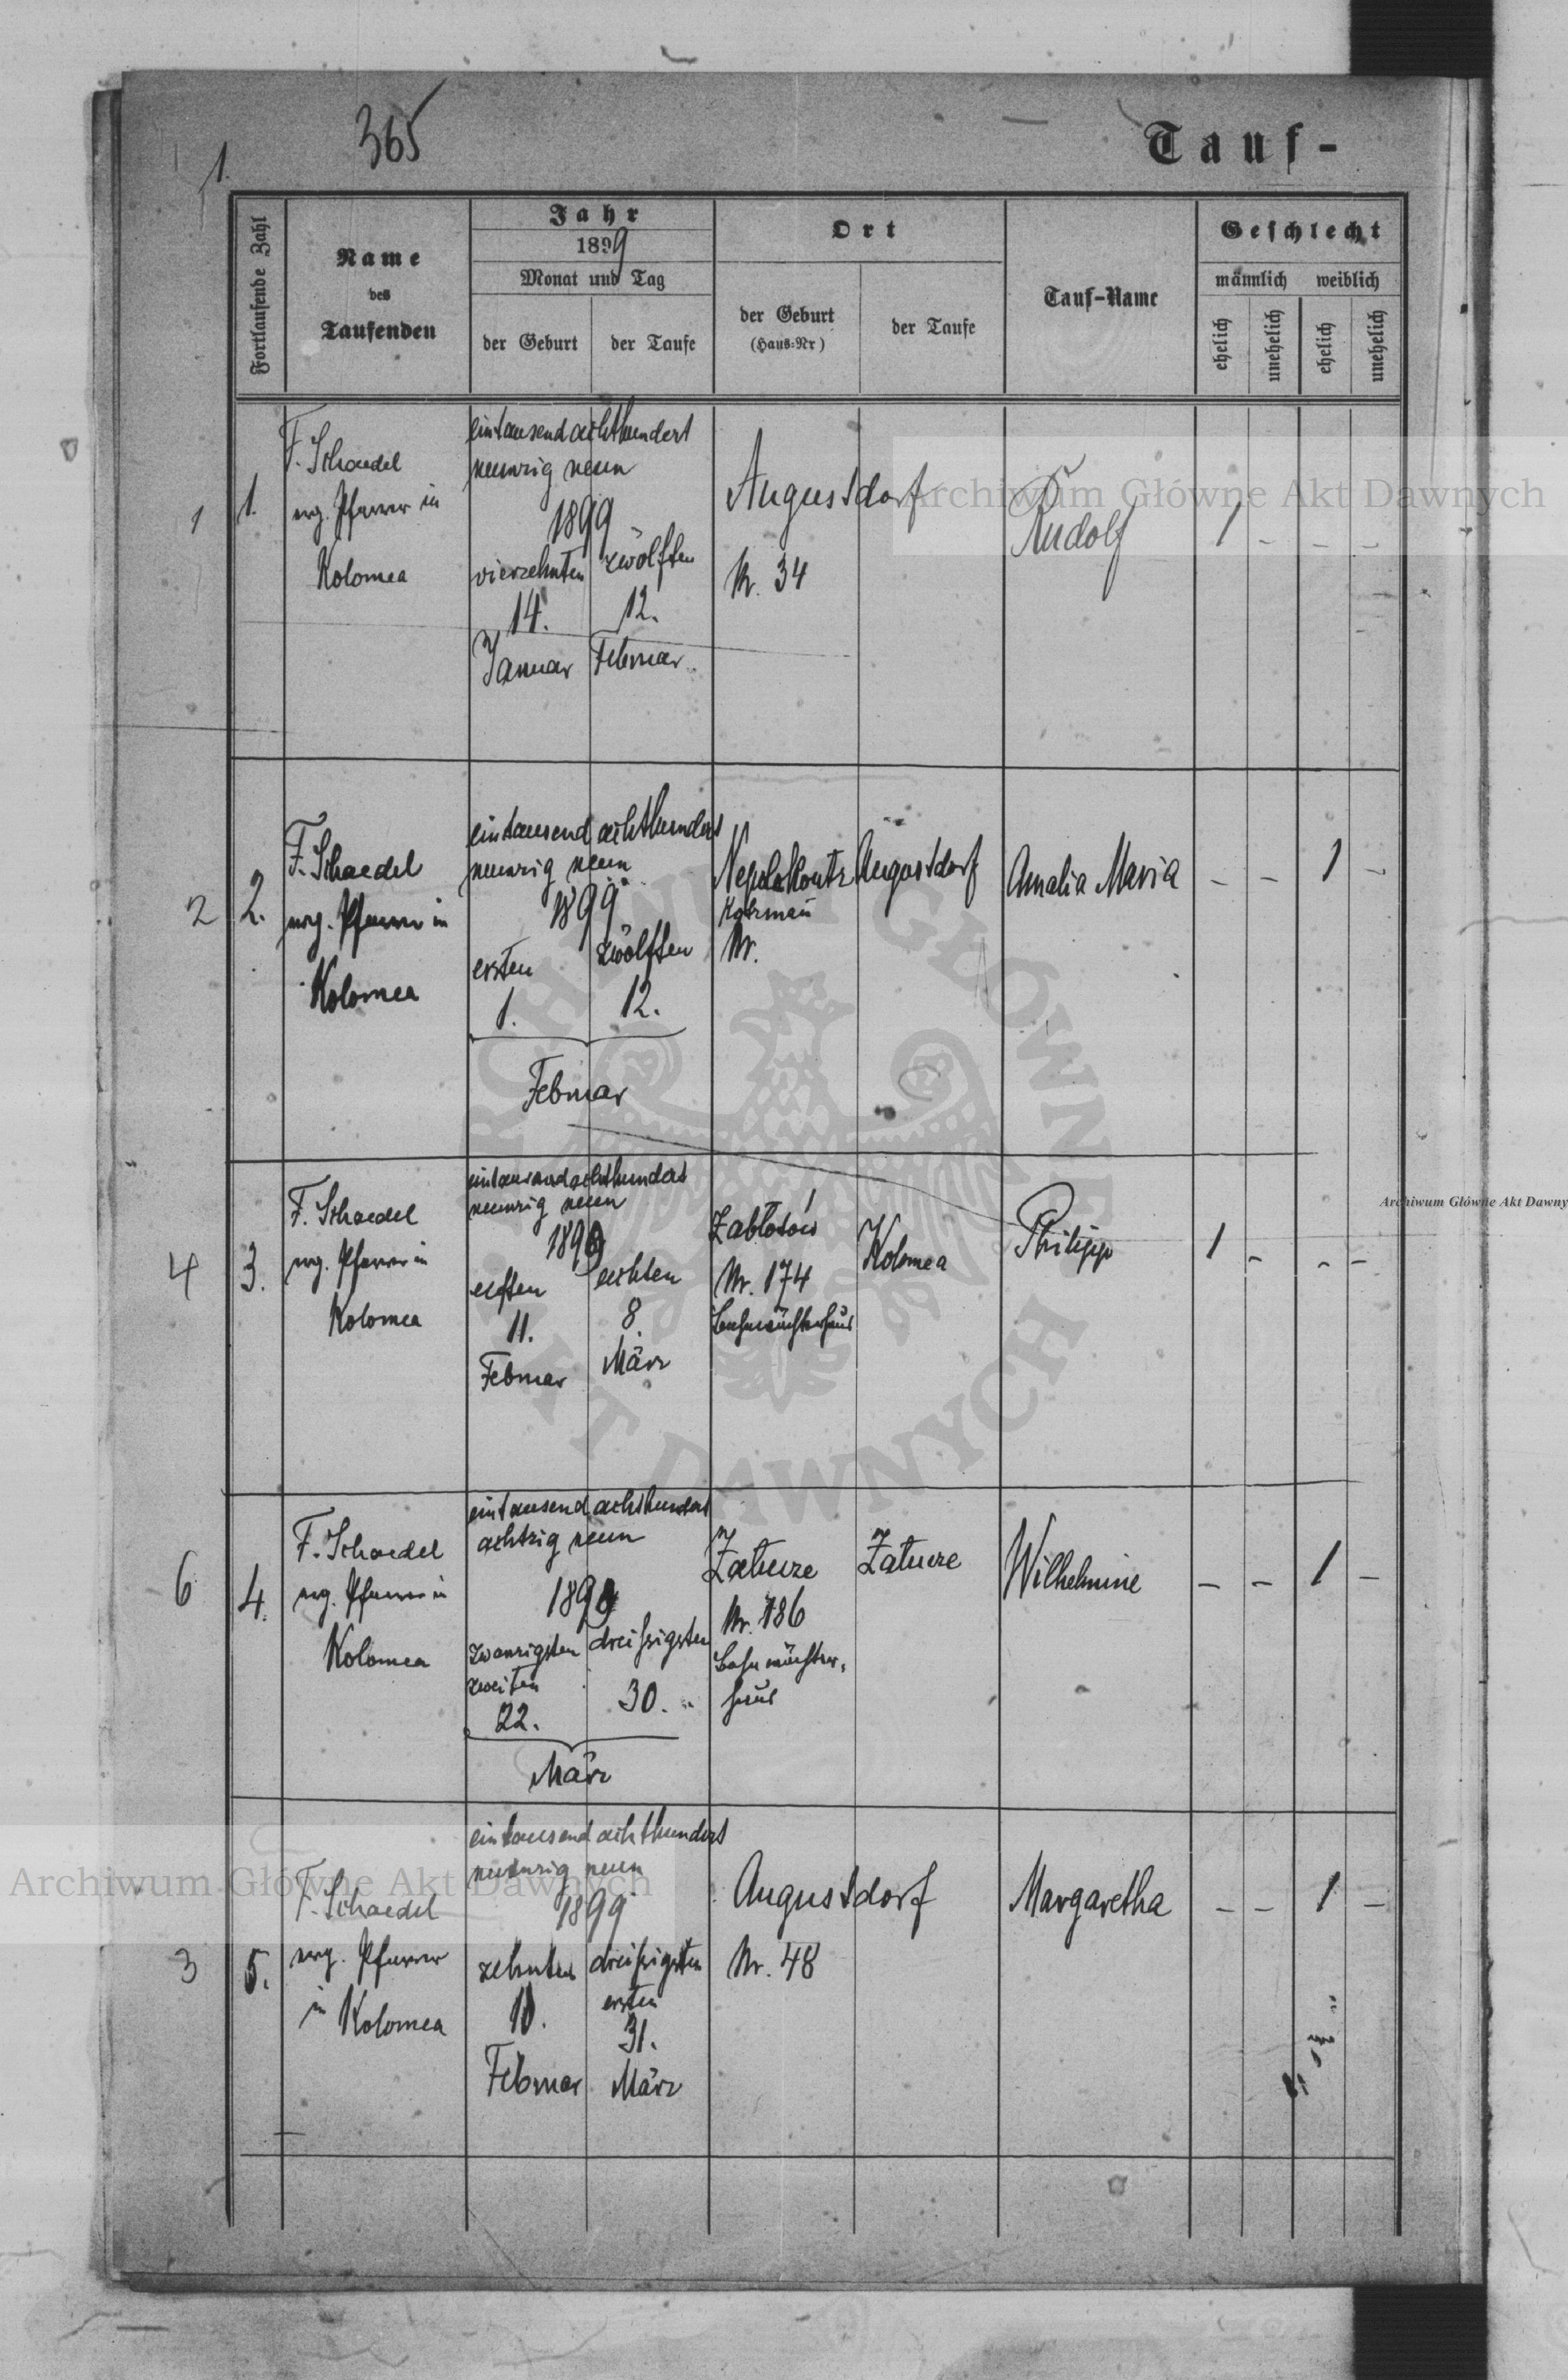 365
1.
Tauf-
Fortlaufende Zahl
Name
des
Taufenden
Jahr
1899
Monat und Tag
der Geburt
der Taufe
Ort
der Geburt
(Haus-Nr)
der Taufe
Tauf-Name
Geschlecht
männlich weiblich
ehelich
unehelich
ehelich
unehelich
1 1.
F. Schaedel
evg. Pfarrer in
Kolomea
eintausend achthundert
neunzig neun
1899
vierzehnten zwölften
14. 12.
Januar Februar
Augustdorf
Nr. 34
Rudolf
1 - - -
2 2.
F. Schaedel
evg. Pfarrer in
Kolomea
eintausend achthundert
neunzig neun
1899
ersten zwölften
1. 12.
Februar
Nepolokoutz
Kotzman
Nr.
Augustdorf
Amalia Maria
- - 1 -
4 3.
F. Schaedel
evg. Pfarrer in
Kolomea
eintausend achthundert
neunzig neun
1899
elften achten
11. 8.
Februar März
Zabłotów
Nr. 174
Bahnwächterhaus
Kolomea
Philipp
1 - - -
6 4.
F. Schaedel
evg. Pfarrer in
Kolomea
eintausend achthundert
achtzig neun
1899
zwanzigsten dreißigsten
zweiten
22. 30.
März
Zatucze
Nr. 186
Bahnwächter-
haus
Zatucze
Wilhelmine
- - 1 -
3 5.
F. Schaedel
evg. Pfarrer
in Kolomea
eintausend achthundert
neunzig neun
1899
zehnten dreißigsten
ersten
10. 31.
Februar März
Augustdorf
Nr. 48
Margaretha
- - 1 -
Archiwum Główne Akt Dawnych
Archiwum Główne Akt Dawny
Archiwum Główne Akt Dawnych
ARCHIWUM GŁÓWNE AKT DAWNYCH